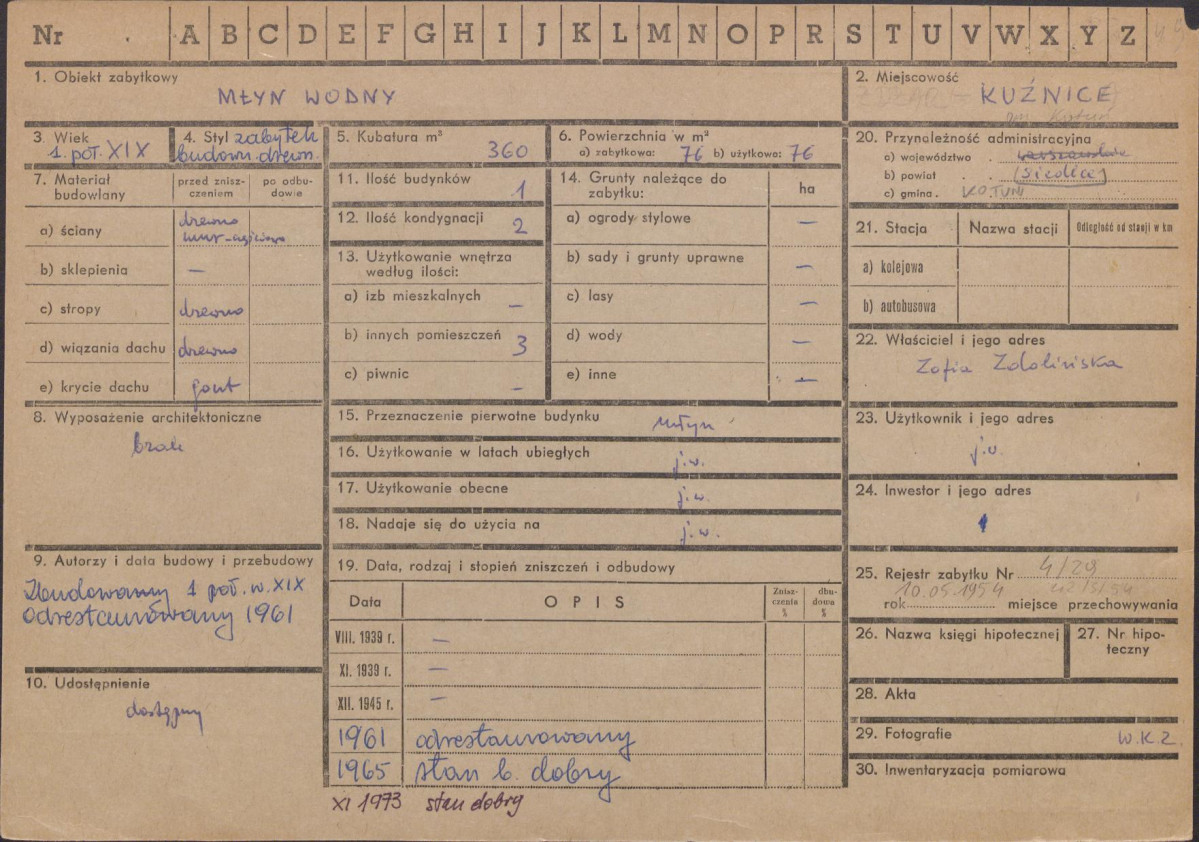 Nr A B C D E F G H I J K L M N O P R S T U V W X Y Z
1. Obiekt zabytkowy
MŁYN WODNY
2. Miejscowość
KUŹNICE
3. Wiek
1. poł. XIX
4. Styl zabytek
budown. drewn.
5. Kubatura m³
360
6. Powierzchnia w m²
a) zabytkowa: 76 b) użytkowa: 76
7. Materiał
budowlany
przed znisz-
czeniem
po odbu-
dowie
a) ściany
drewno
b) sklepienia
—
c) stropy
drewno
d) wiązania dachu
drewno
e) krycie dachu
gont
8. Wyposażenie architektoniczne
brak
9. Autorzy i data budowy i przebudowy
Zbudowany 1 poł. w. XIX
odrestaurowany 1961
10. Udostępnienie
dostępny
11. Ilość budynków
1
12. Ilość kondygnacji
2
13. Użytkowanie wnętrza
według ilości:
a) izb mieszkalnych
—
b) innych pomieszczeń
3
c) piwnic
—
14. Grunty należące do
zabytku:
ha
a) ogrody stylowe
—
b) sady i grunty uprawne
—
c) lasy
—
d) wody
—
e) inne
—
15. Przeznaczenie pierwotne budynku
młyn
16. Użytkowanie w latach ubiegłych
j.w.
17. Użytkowanie obecne
j.w.
18. Nadaje się do użycia na
j.w.
19. Data, rodzaj i stopień zniszczeń i odbudowy
Data
OPIS
Znisz-
czenia
%
dbu-
dowa
%
VIII. 1939 r. —
XI. 1939 r. —
XII. 1945 r. —
1961 odrestaurowany
1965 stan b. dobry
XI 1973 stan dobry
20. Przynależność administracyjna
a) województwo . warszawskie
b) powiat . siedlce
c) gmina . KOTUŃ
21. Stacja
Nazwa stacji
Odległość od stacji w km
a) kolejowa
b) autobusowa
22. Właściciel i jego adres
Zofia Zdolińska
23. Użytkownik i jego adres
j.w.
24. Inwestor i jego adres
25. Rejestr zabytku Nr 4/29
10.05.1954
rok miejsce przechowywania
26. Nazwa księgi hipotecznej
27. Nr hipo-
teczny
28. Akta
29. Fotografie
W.K.Z.
30. Inwentaryzacja pomiarowa